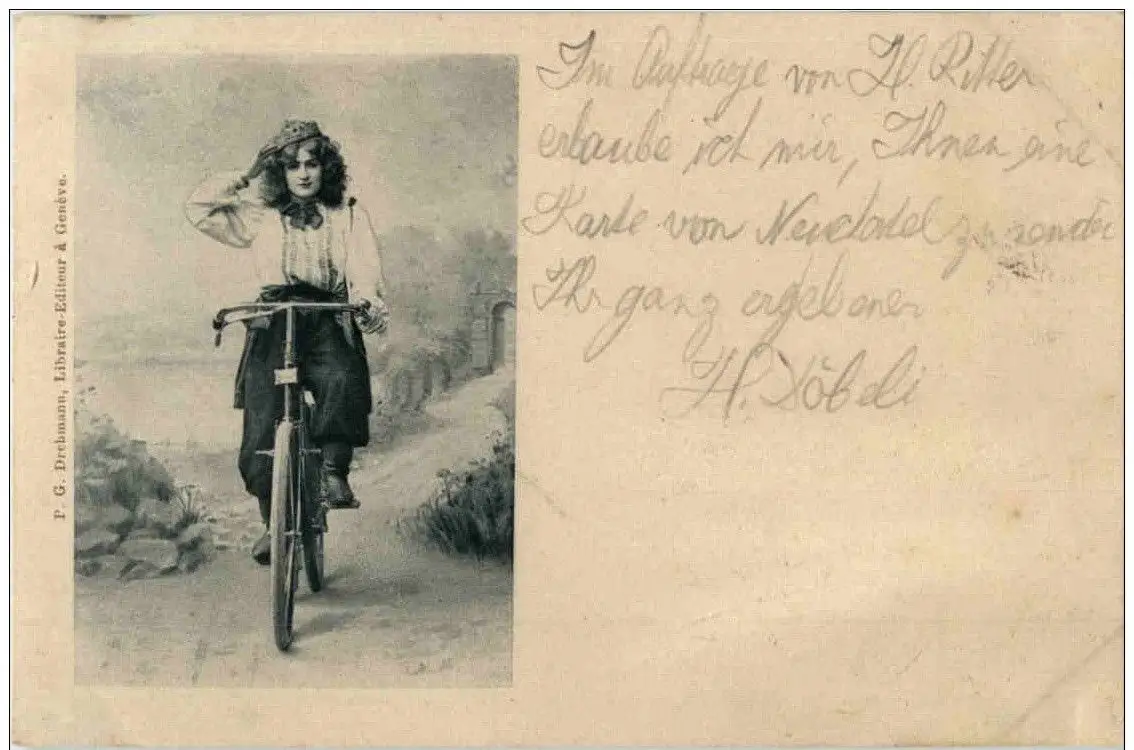 P. G. Drehmann, Libraire-Editeur à Genève.
Im Auftrage von H. Ritter
erlaube ich mir, Ihnen eine
Karte von Neuchatel zu senden
Ihr ganz ergebener
H. Döbeli